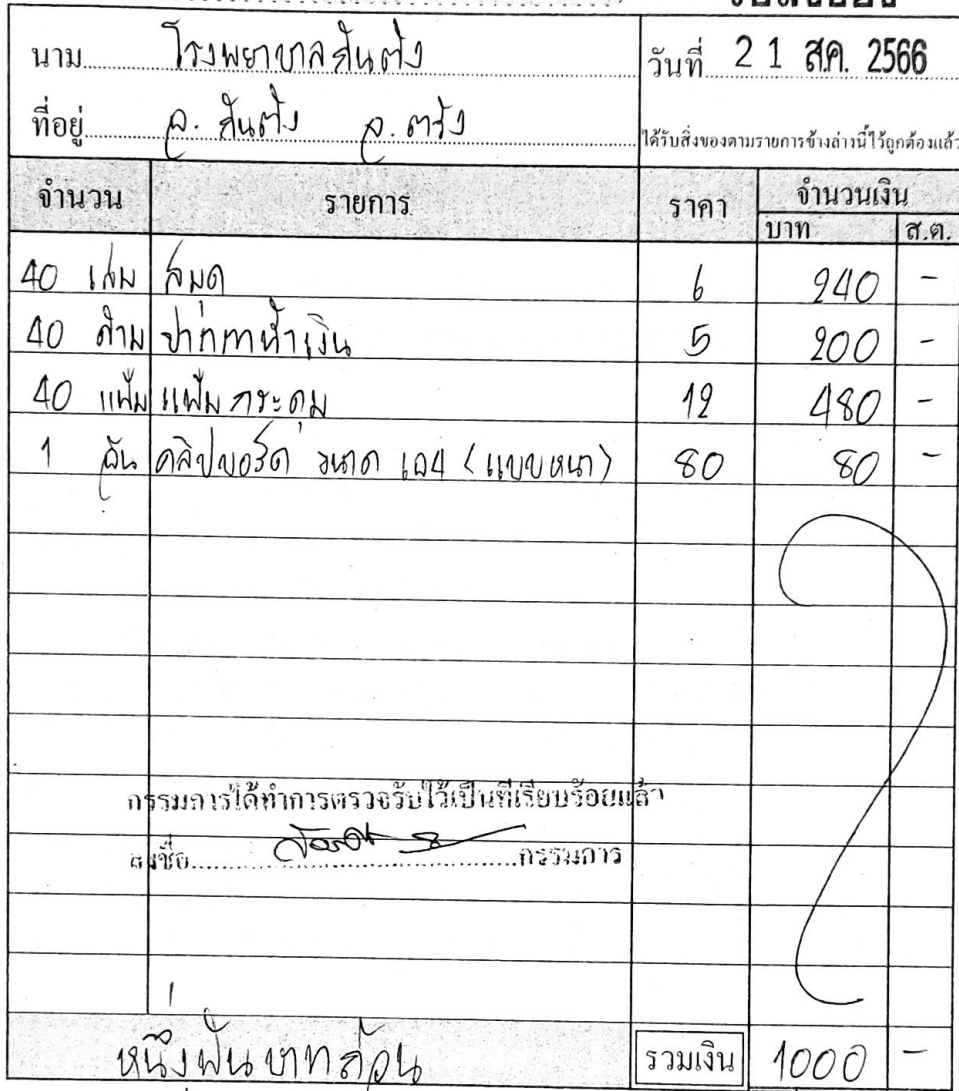 นาม โรงพยาบาลกันตัง วันที่ 21 ส.ค. 2566
ที่อยู่ อ. กันตัง จ. ตรัง ได้รับสิ่งของตามรายการข้างล่างนี้ไว้ถูกต้องแล้ว
จำนวน รายการ ราคา จำนวนเงิน
บาท ส.ต.
40 เล่ม สมุด 6 240 -
40 ด้าม ปากกาน้ำเงิน 5 200 -
40 แฟ้ม แฟ้มกระดุม 12 480 -
1 อัน คลิปบอร์ด ขนาด เอ4 (แบบหนา) 80 80 -
กรรมการได้ทำการตรวจรับไว้เป็นที่เรียบร้อยแล้ว
ลงชื่อ กรรมการ
หนึ่งพันบาทถ้วน รวมเงิน 1000 -